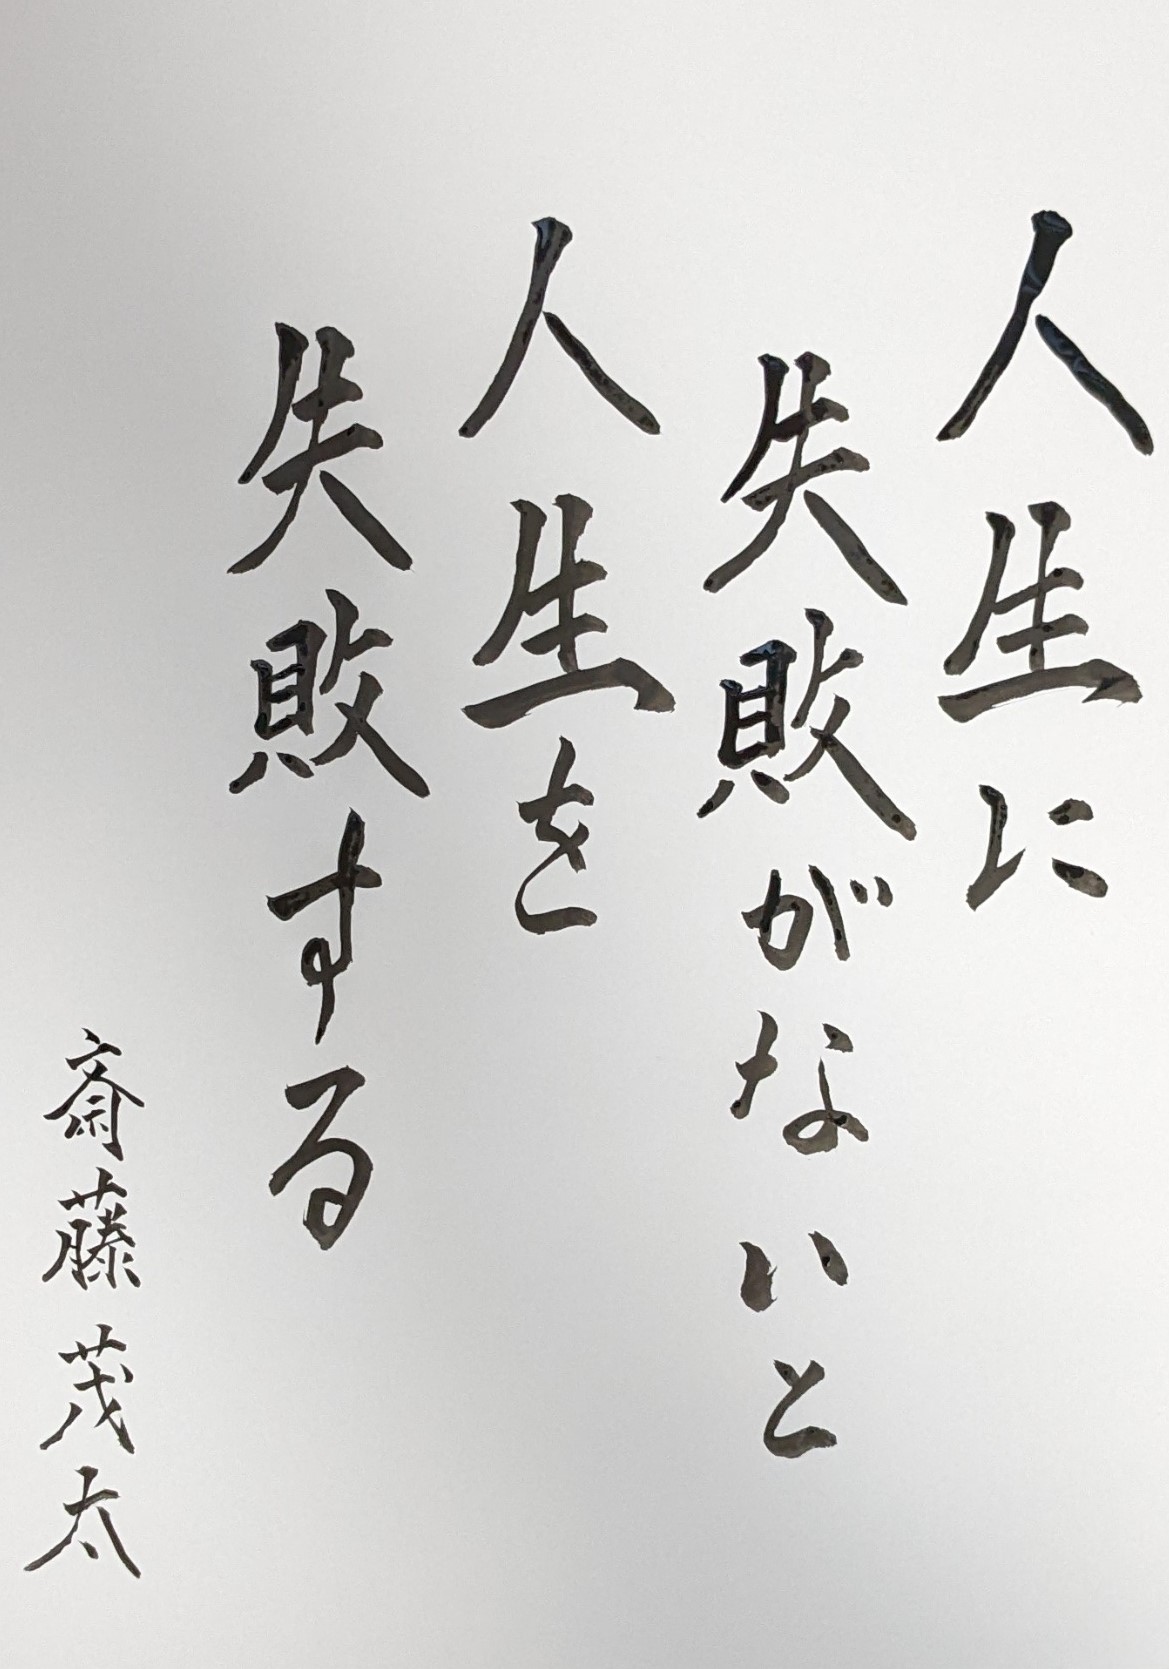 人生に
失敗がないと
人生を
失敗する
斎藤茂太